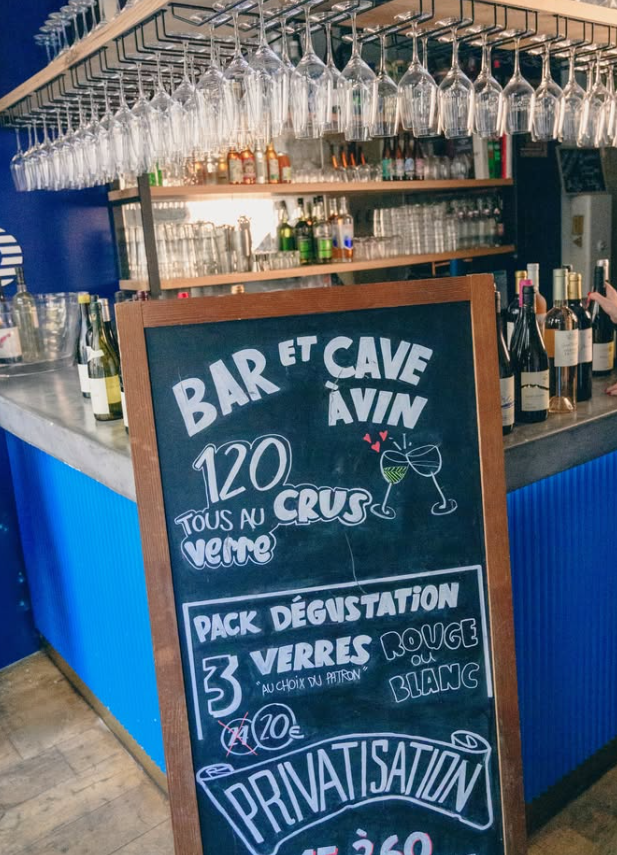 BAR ET CAVE
À VIN
120
CRUS
TOUS AU
verre
PACK DÉGUSTATION
3 VERRES
"AU CHOIX DU PATRON"
ROUGE
OU
BLANC
20€
PRIVATISATION
à 60